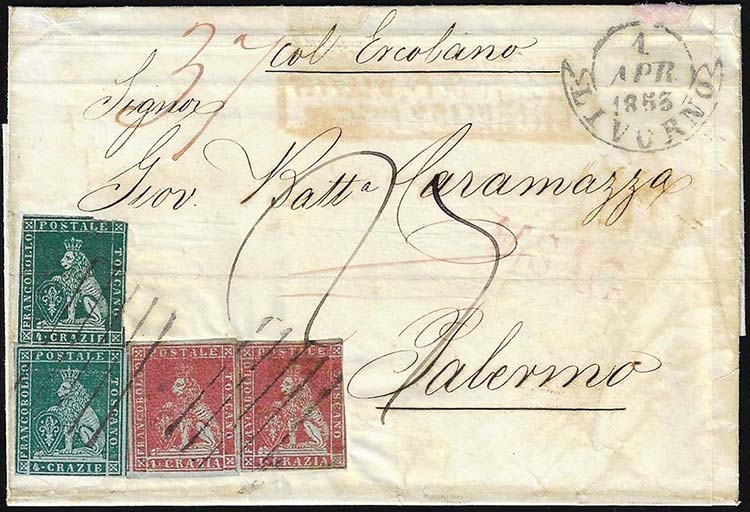 37
col Ercolano
1
APR
1853
LIVORNO
Signor
Giov. Batt.a Caramazza
Palermo
FRANCOBOLLO POSTALE TOSCANO
4·CRAZIE
FRANCOBOLLO POSTALE TOSCANO
4·CRAZIE
FRANCOBOLLO POSTALE TOSCANO
1·CRAZIA
FRANCOBOLLO POSTALE TOSCANO
1·CRAZIA